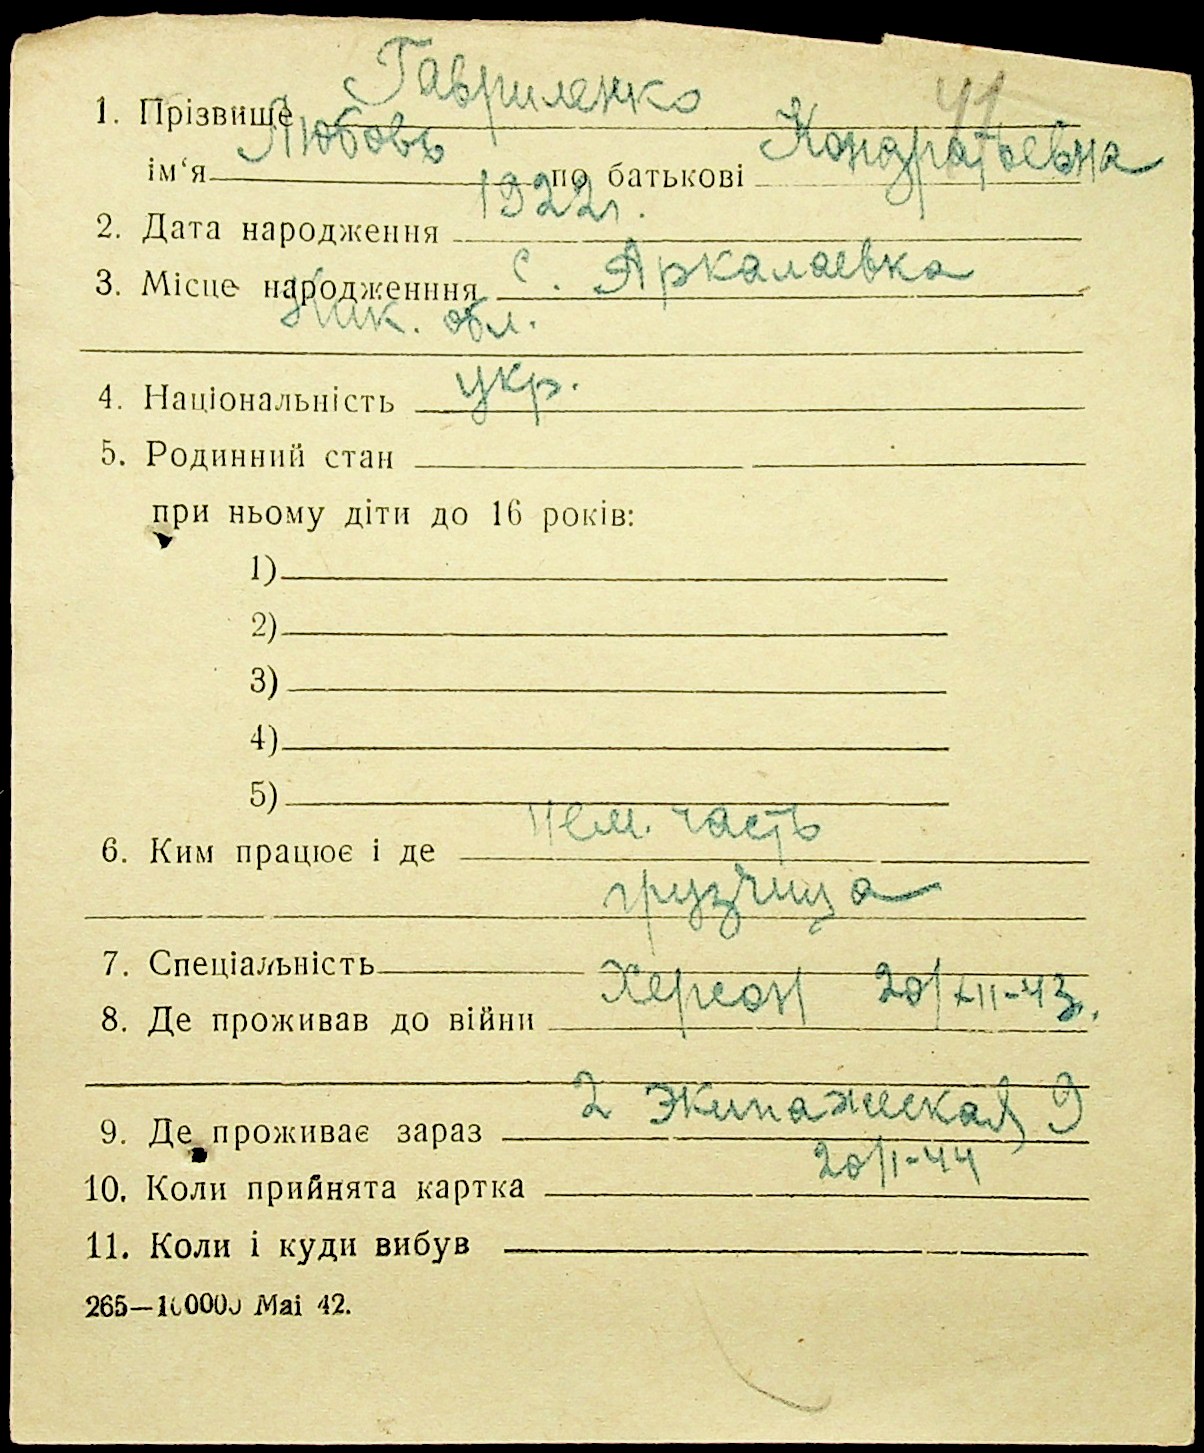 41
1. Прізвище Гавриленко
ім‘я Любовь по батькові Кондратьевна
2. Дата народження 1922г.
3. Місце народженння с. Аркалаевка
Ник. обл.
4. Національність укр.
5. Родинний стан
при ньому діти до 16 років:
1)
2)
3)
4)
5)
6. Ким працює і де Нем. часть
грузчица
7. Спеціальність
8. Де проживав до війни Херсон 20/XII-43.
9. Де проживає зараз 2 Экипажеская 9
10. Коли прийнята картка 20/I-44
11. Коли і куди вибув
265—100000 Mai 42.